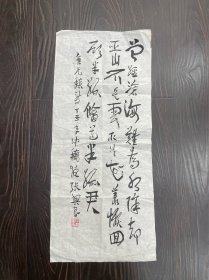 曾经沧海难为水除却
巫山不是云取次花丛懒回
顾半缘修道半缘君
唐元稹诗丁亥